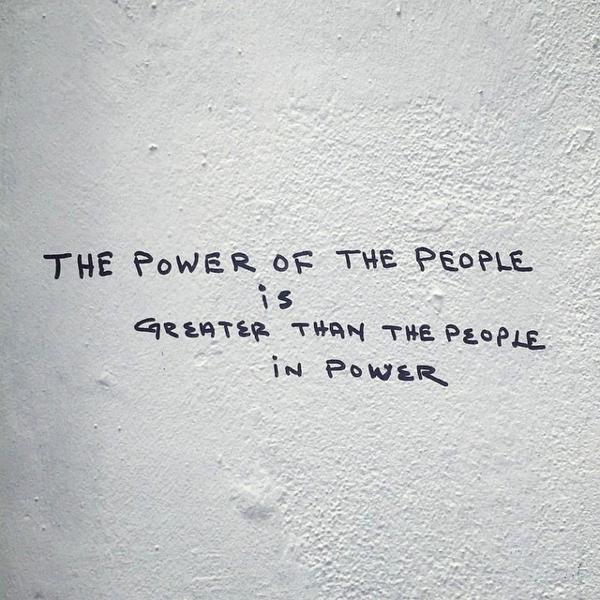 THE POWER OF THE PEOPLE
iS
GREATER THAN THE PEOPLE
iN POWER